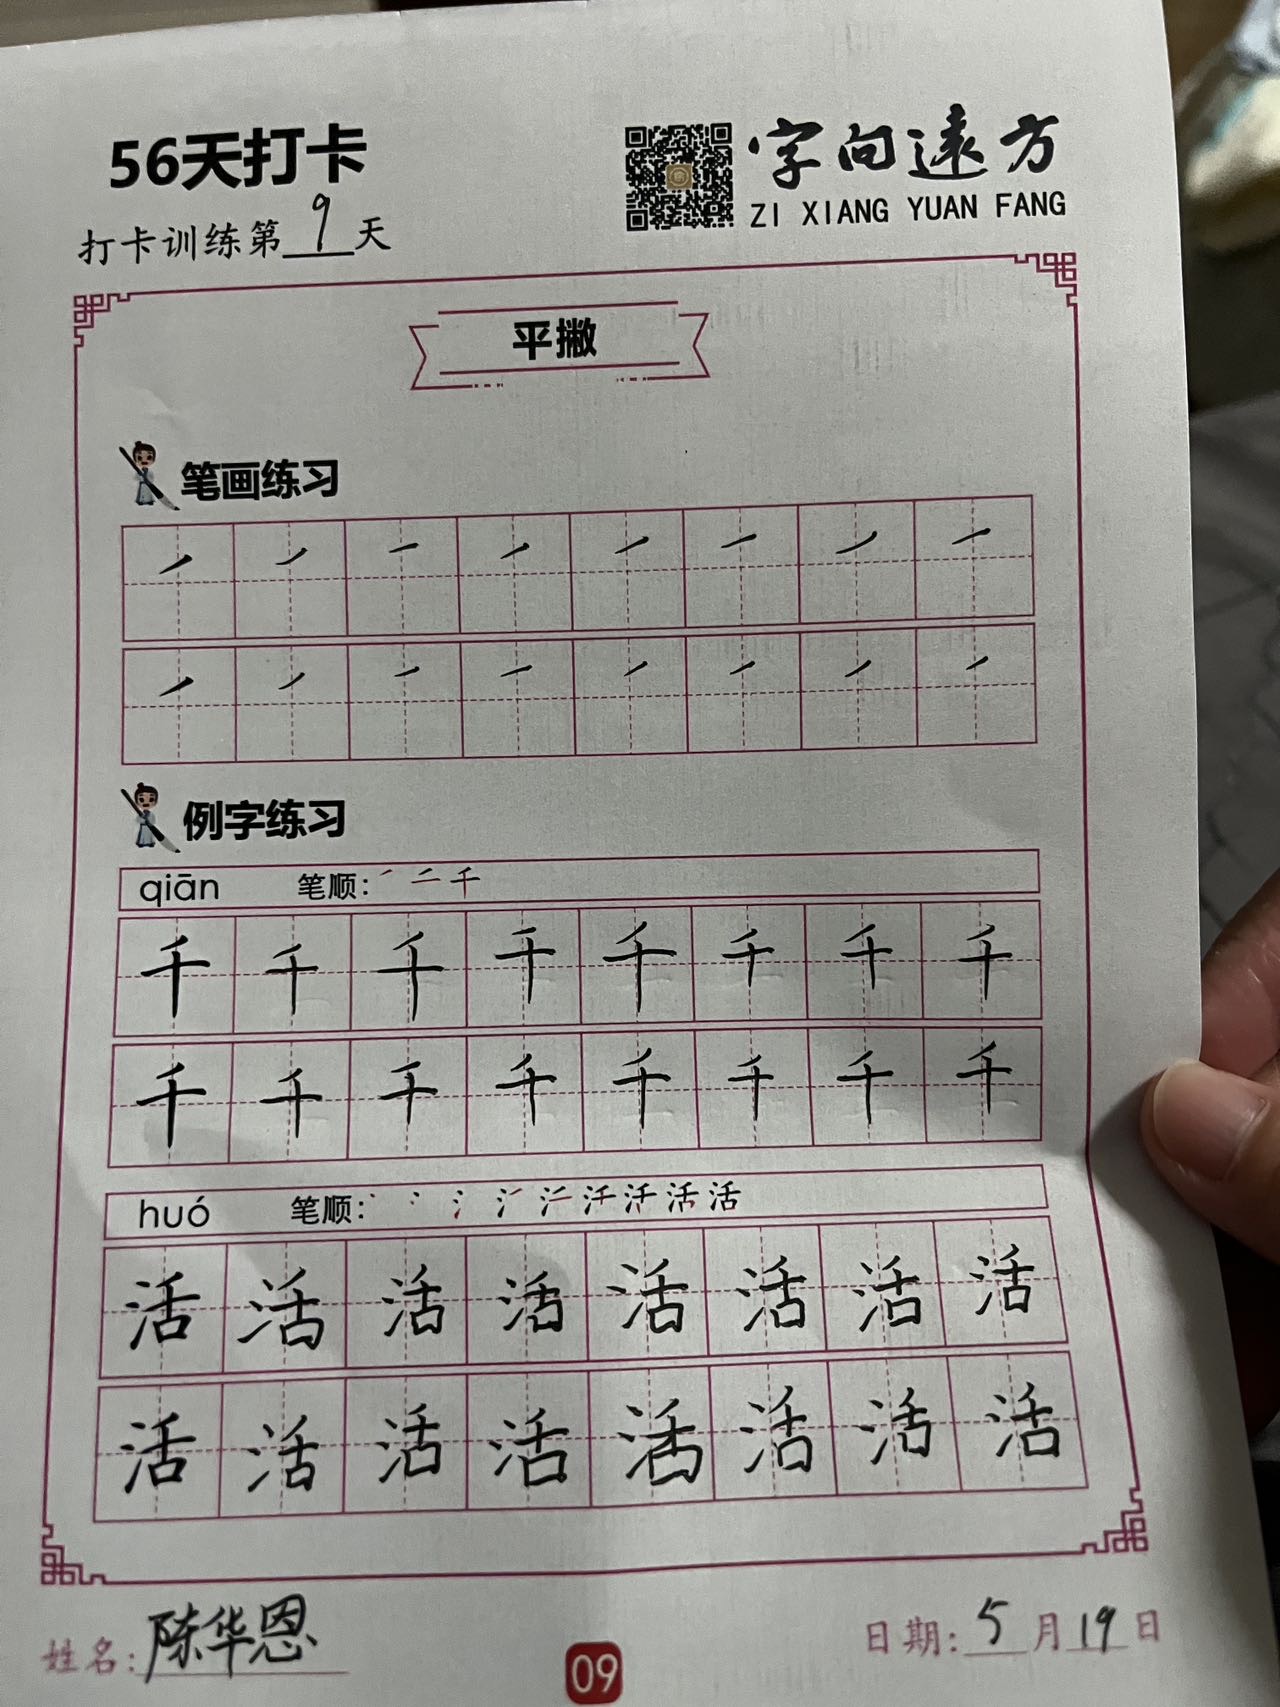 56天打卡
字向遠方
ZI XIANG YUAN FANG
打卡训练第9天
平撇
笔画练习
㇒ ㇒ ㇒ ㇒ ㇒ ㇒ ㇒ ㇒
㇒ ㇒ ㇒ ㇒ ㇒ ㇒ ㇒ ㇒
例字练习
qiān 笔顺: ㇒ 二 千
千 千 千 千 千 千 千 千
千 千 千 千 千 千 千 千
huó 笔顺: 活
活 活 活 活 活 活 活 活
活 活 活 活 活 活 活 活
姓名: 陈华恩
09
日期: 5月19日